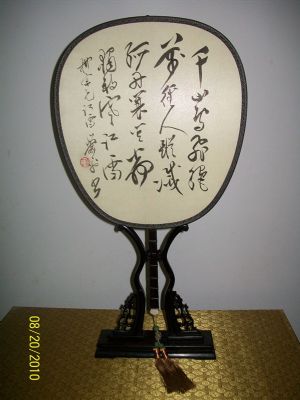 千山鳥飛絕
萬徑人蹤滅
孤舟蓑笠翁
獨釣寒江雪
柳宗元江雪
08/20/2010